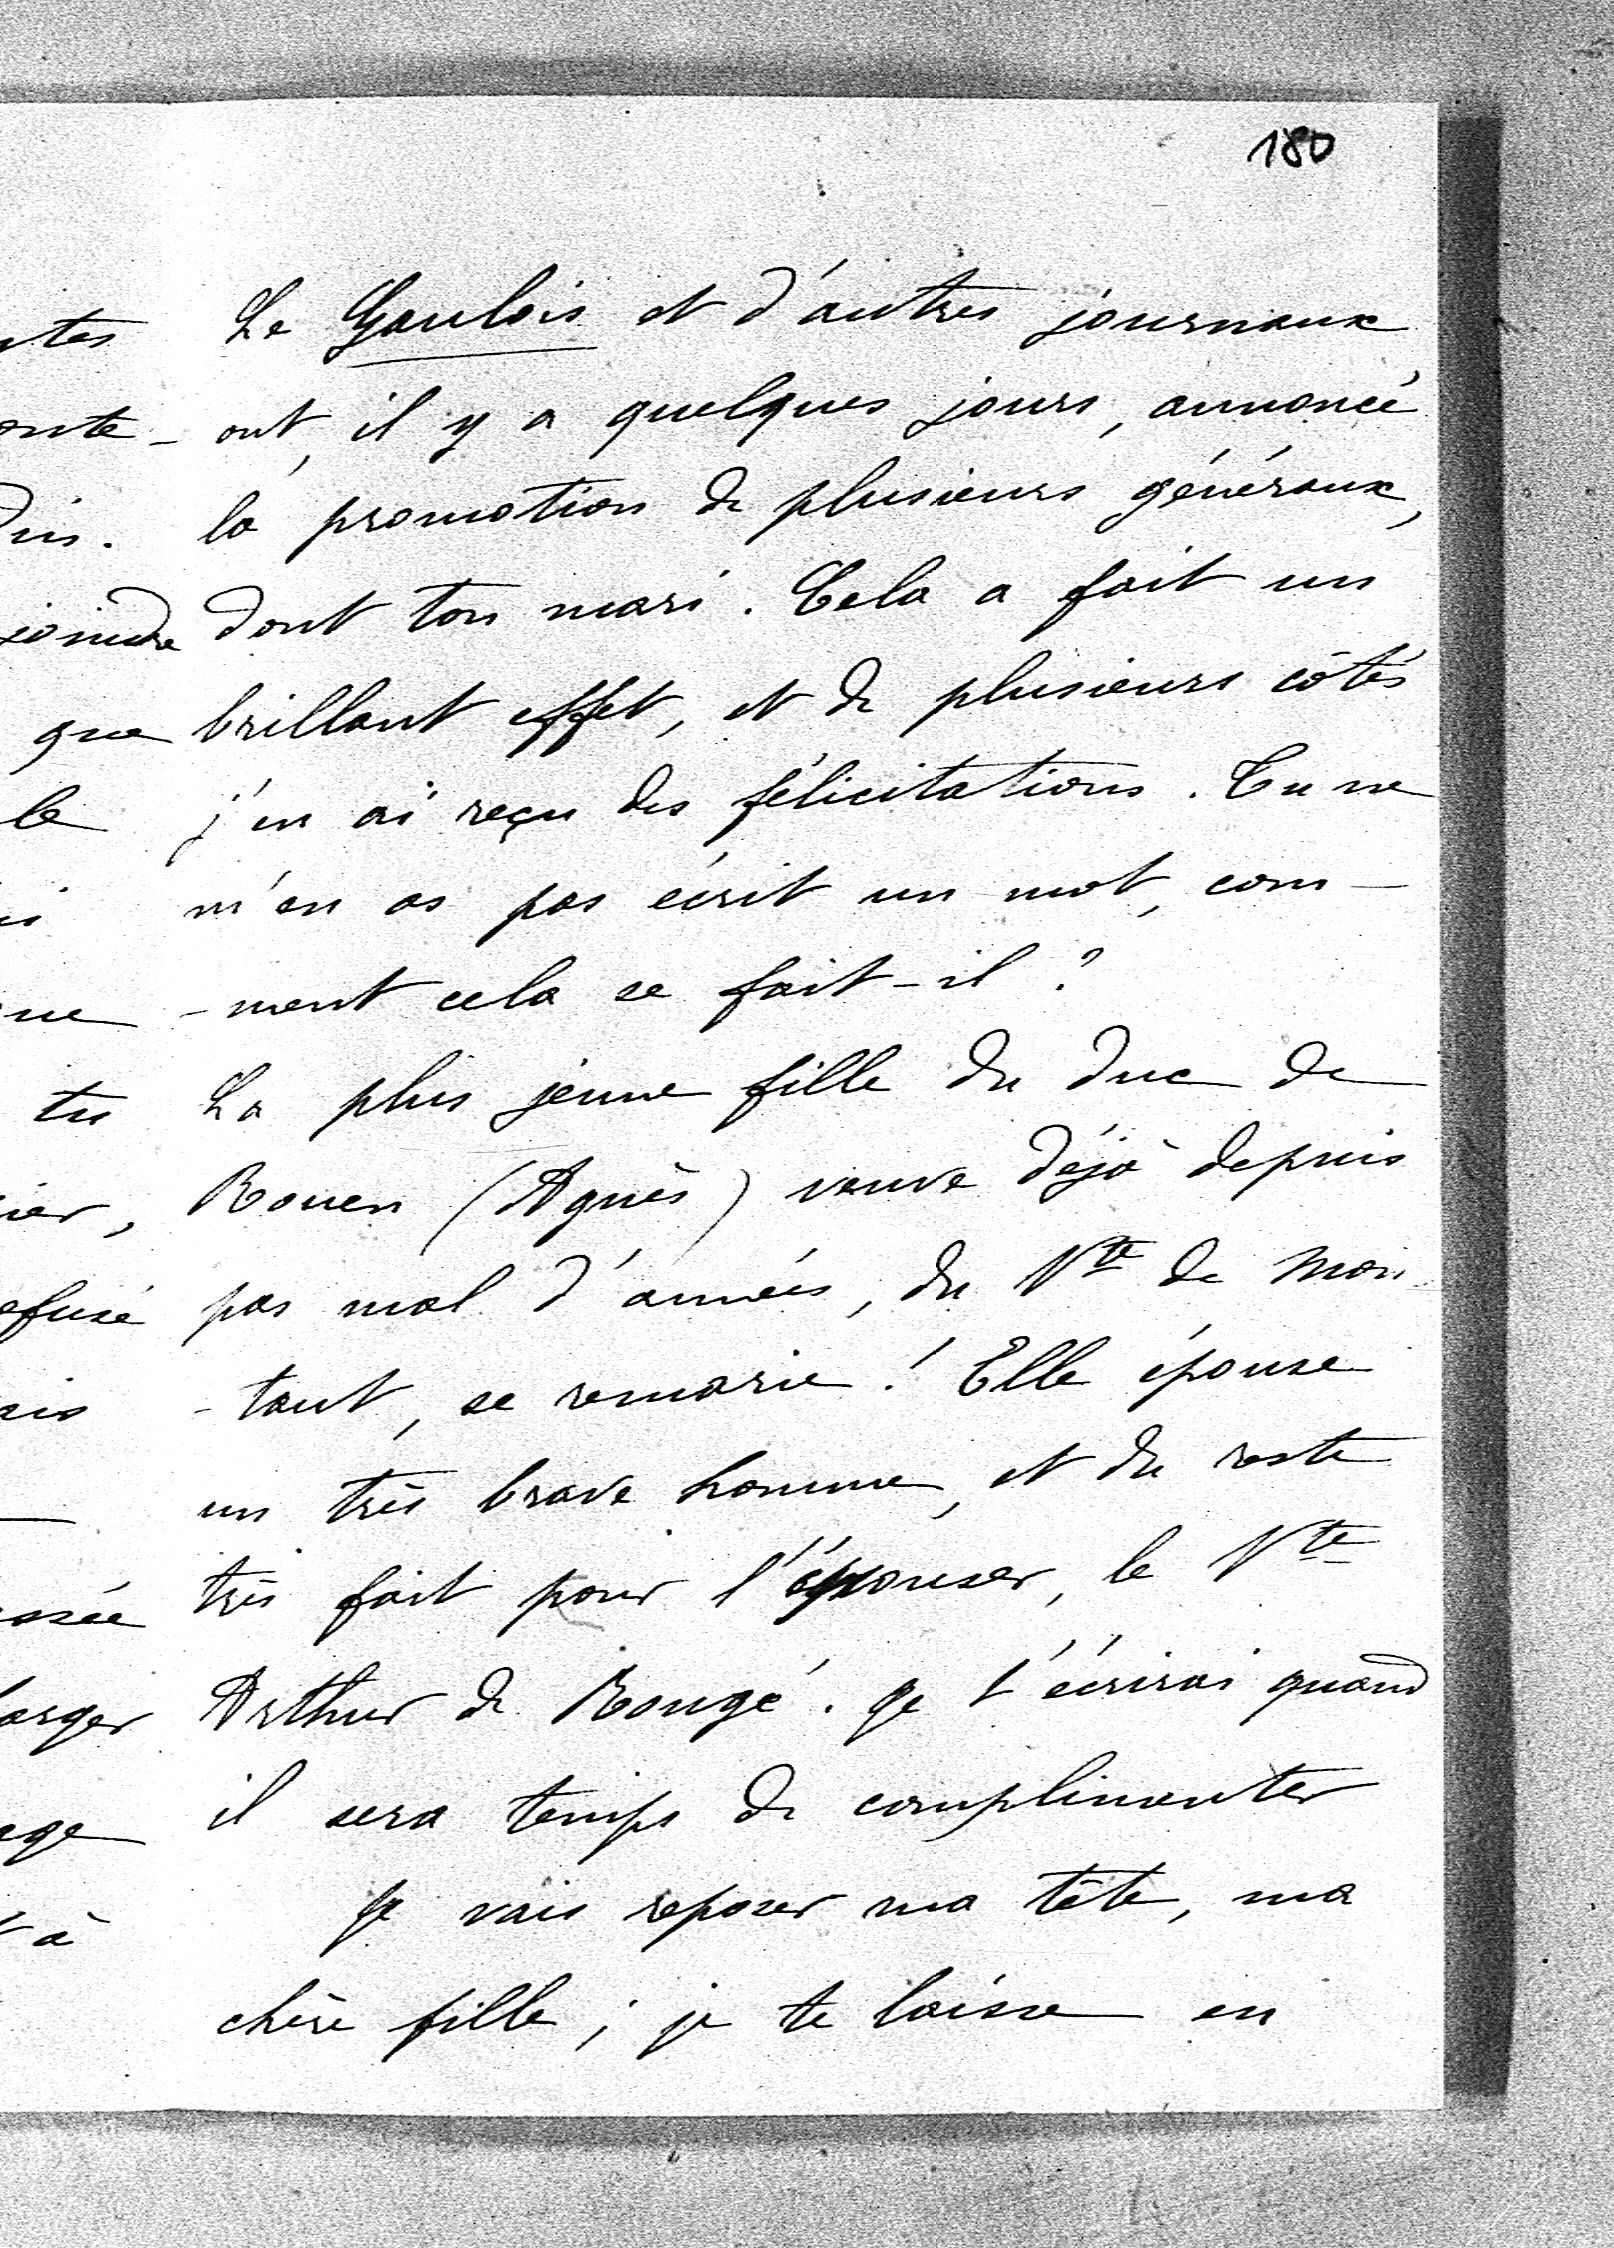 180
Le Gaulois et d'autres journaux
ont, il y a quelques jours, annoncé
la promotion de plusieurs généraux,
dont ton mari. Cela a fait un
brillant effet, et de plusieurs côtés
j'en ai reçu des félicitations. Tu ne
m'en as pas écrit un mot, com-
-ment cela se fait-il ?
La plus jeune fille du duc de
Rouen (Agnès) veuve déjà depuis
pas mal d'années, du Vte de Mon
-taut, se remarie ! Elle épouse
un très brave homme, et du reste
très fait pour l'épouser, le Vte
Arthur de Rougé. Je t'écrirai quand
il sera temps de complimenter
Je vais reposer ma tête, ma
chère fille ; je te laisse en